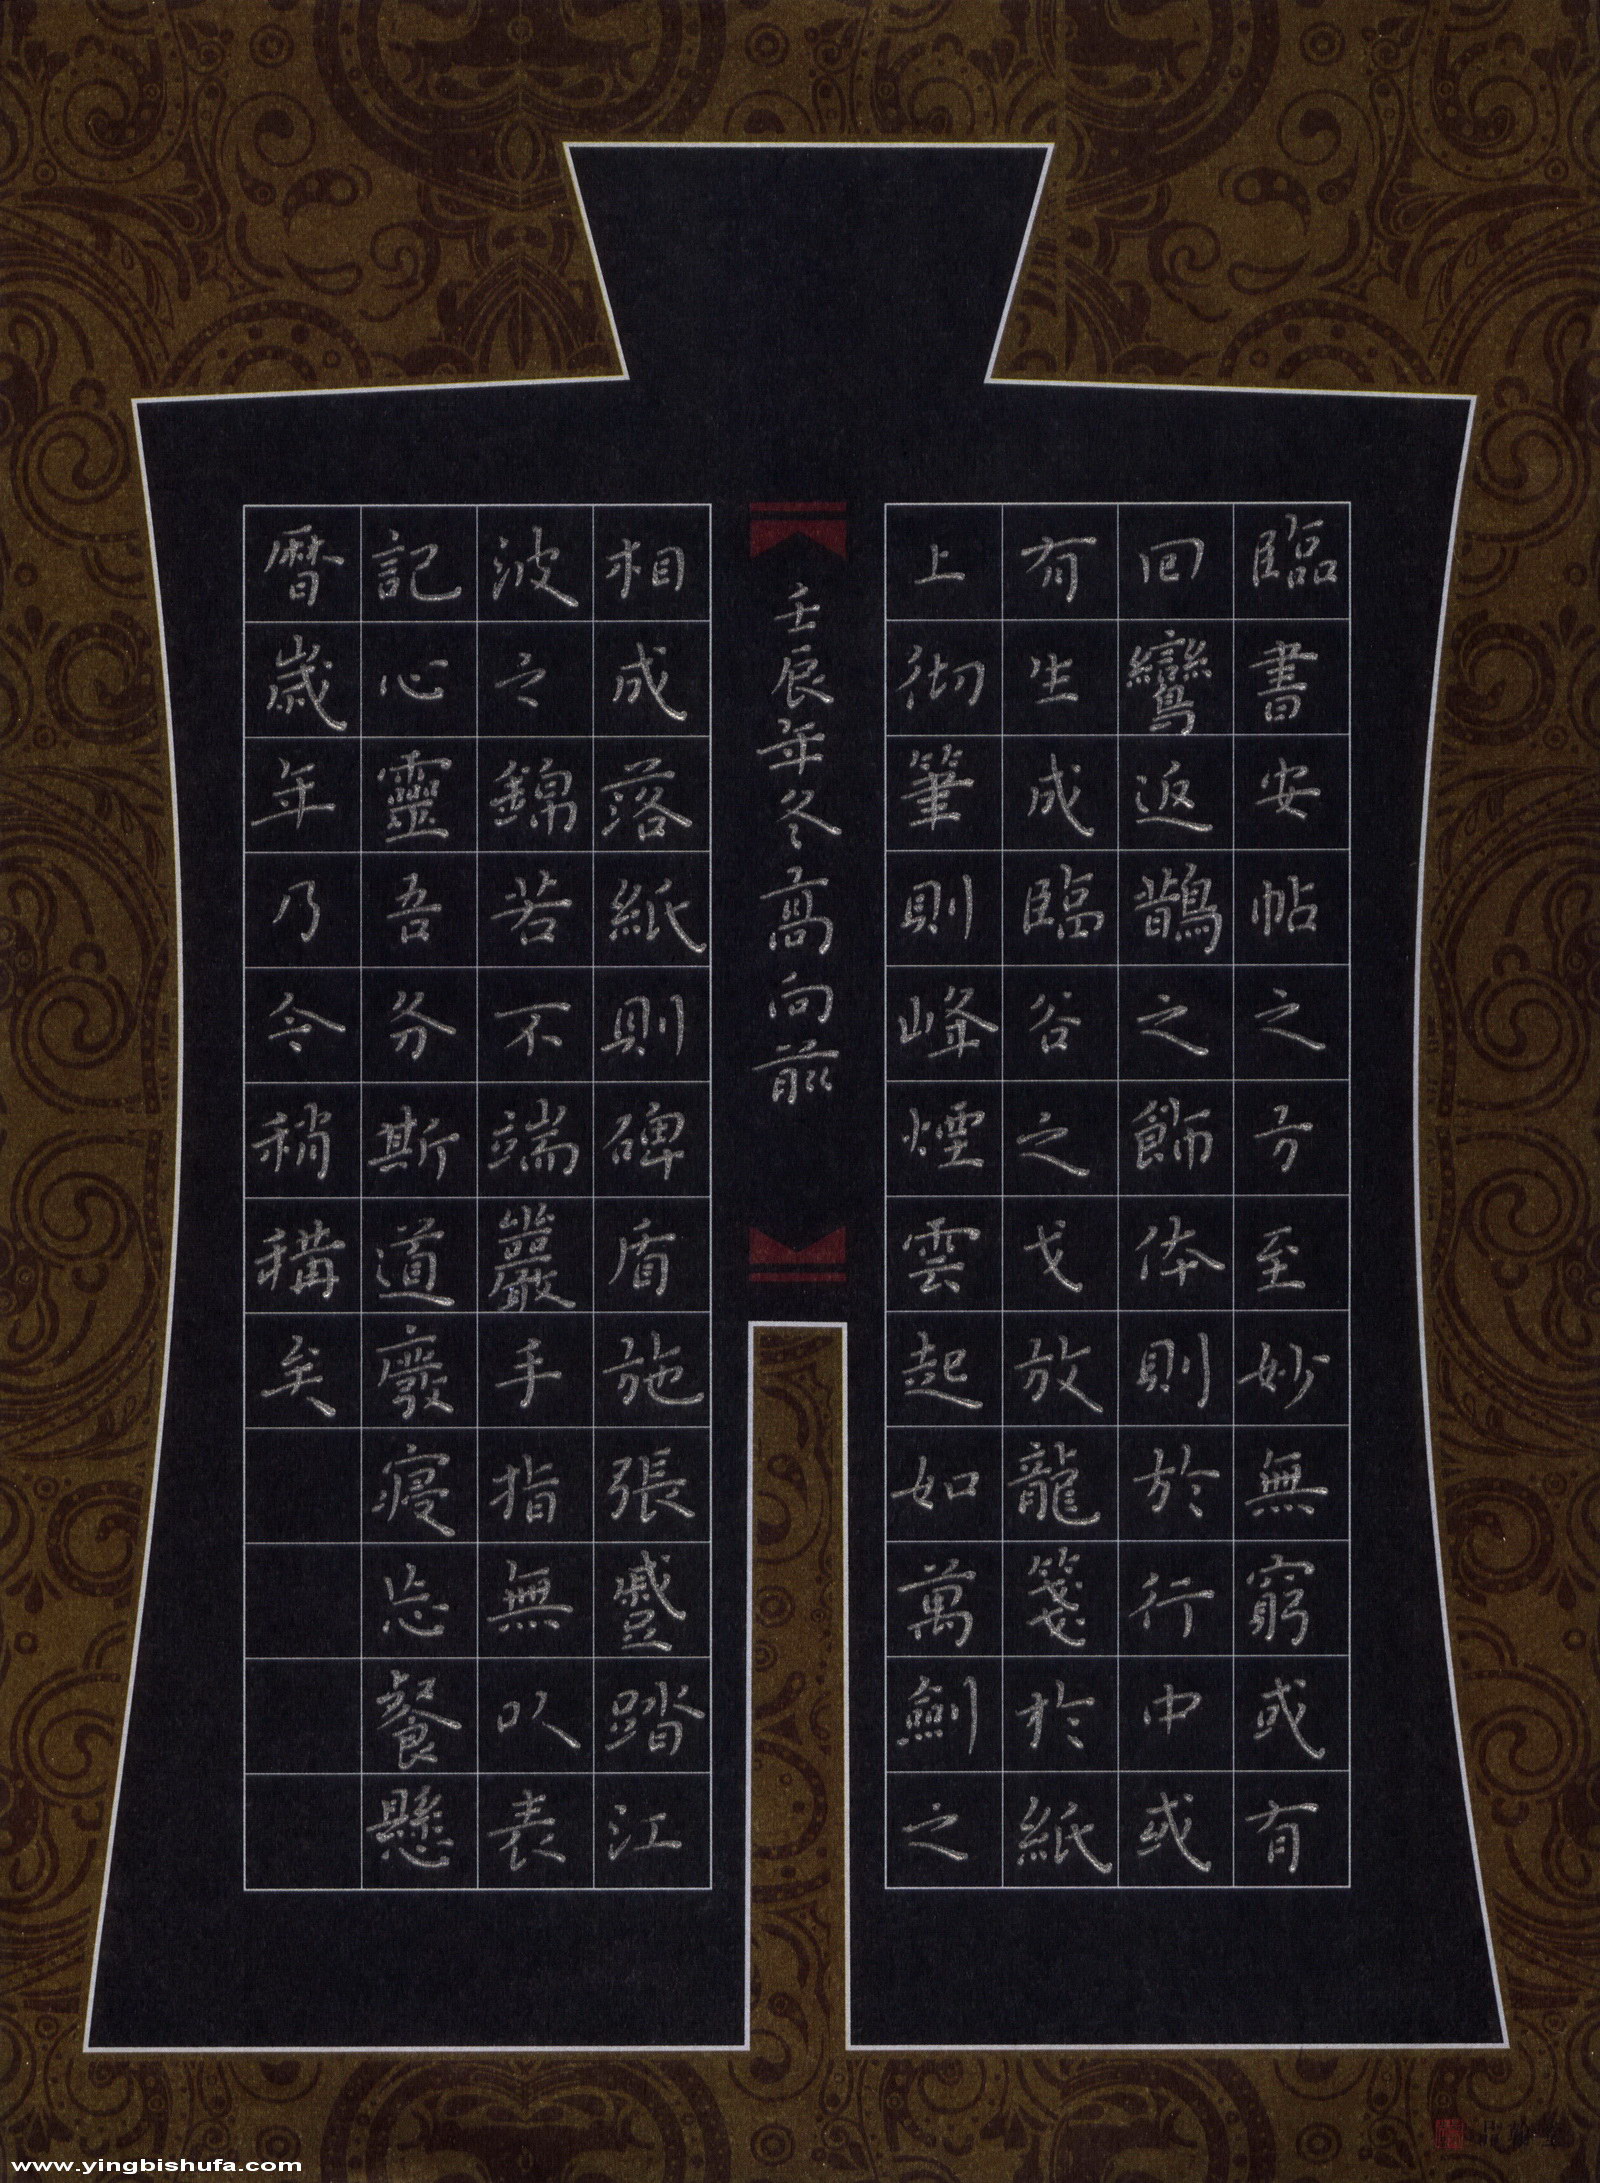 臨書安帖之方至妙無窮或有
回鸞返鵲之飾体則於行中或
有生成臨谷之戈放龍箋於紙
上彻筆則峰煙雲起如萬劍之
相成落紙則碑盾施張蹙踏江
波之錦若不端嚴手指無以表
記心靈吾务斯道廢寢忘餐懸
曆歲年乃今稍稱矣
壬辰年冬高向前
www.yingbishufa.com